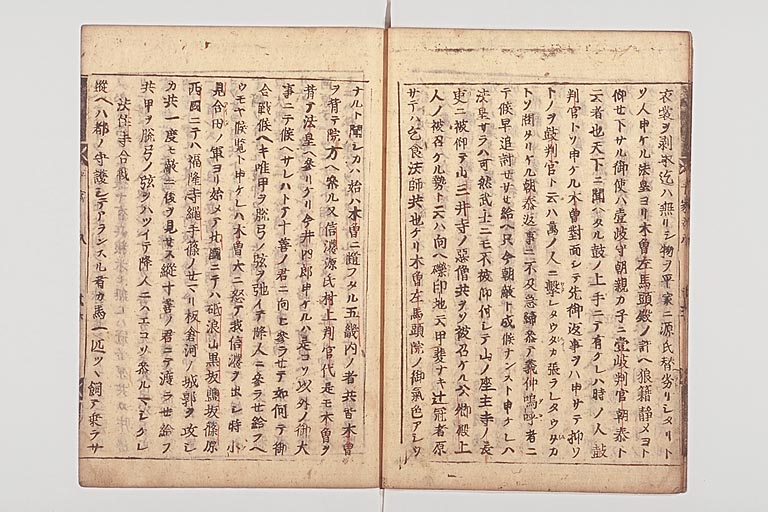 衣裳ヲ剥取迄ハ無リシ物ヲ平家ニ源氏替劣リシタリト
ソ人申ケル法皇ヨリ木曽左馬頭殿ノ許ヘ狼籍静メヨト
仰セ下サル御使ハ壹岐守朝親カ子ニ壹岐判官朝泰ト
云者也天下ニ聞ヘタル鼓ノ上手ニテ有ケレハ時ノ人鼓
判官トソ申ケル木曽對面シテ先御返事ヲハ申サテ抑ワ
トノヲ鼓判官ト云ハ萬ノ人ニ撃レタウタカ張ラレタウタカ
トソ問タリケル朝泰返事ニ不及急歸参テ義仲嗚呼者ニ
テ候早追討セサセ給ヘ只今朝敵ト成候ナンスト申ケレハ
法皇サラハ可然武士ニモ不被仰付シテ山ノ座主寺ノ長
吏ニ被仰テ山三井寺ノ惡僧共ヲソ被召ケル公卿殿上
人ノ被召ケル勢ト云ハ向ヘ礫印地云甲斐ナキ辻冠者原
サテハ乞食法師共也ケリ木曽左馬頭院ノ御氣色アシウ
ナルト聞シカハ始ハ木曽ニ随フタル五畿内ノ者共皆木曽
ヲ背テ院方ヘ参ル又信濃源氏村上判官代是モ木曽ヲ
背テ法皇ヘ参リケリ今井四郎申ケルハ是コソ以外ノ御大
事ニテ候ヘサレハトテ十善ノ君ニ向ヒ参ラセテ如何テ御
合戦候ヘキ唯甲ヲ脱弓ノ弦ヲ弛イテ降人ニ参ラせ給フヘ
ウモヤ候覧ト申ケレハ木曽大ニ怒テ我信濃ヲ出シ時小
見合田ノ軍ヨリ始メテ北國ニテハ砥浪山黒坂鹽坂篠原
西國ニテハ福隆寺縄手篠ノせマリ板倉河ノ城郭ヲ攻シ
カ共一度モ敵ニ後ヲ見せス縦十善ノ君ニテ渡ラせ給フ
共甲ヲ脱弓ノ弦ヲハツイテ降人ニハエコソ参ルマシケレ
法住寺合戦
縦ヘハ都ノ守護シテアランスル者カ馬一疋ツヽ飼テ乗ラサ